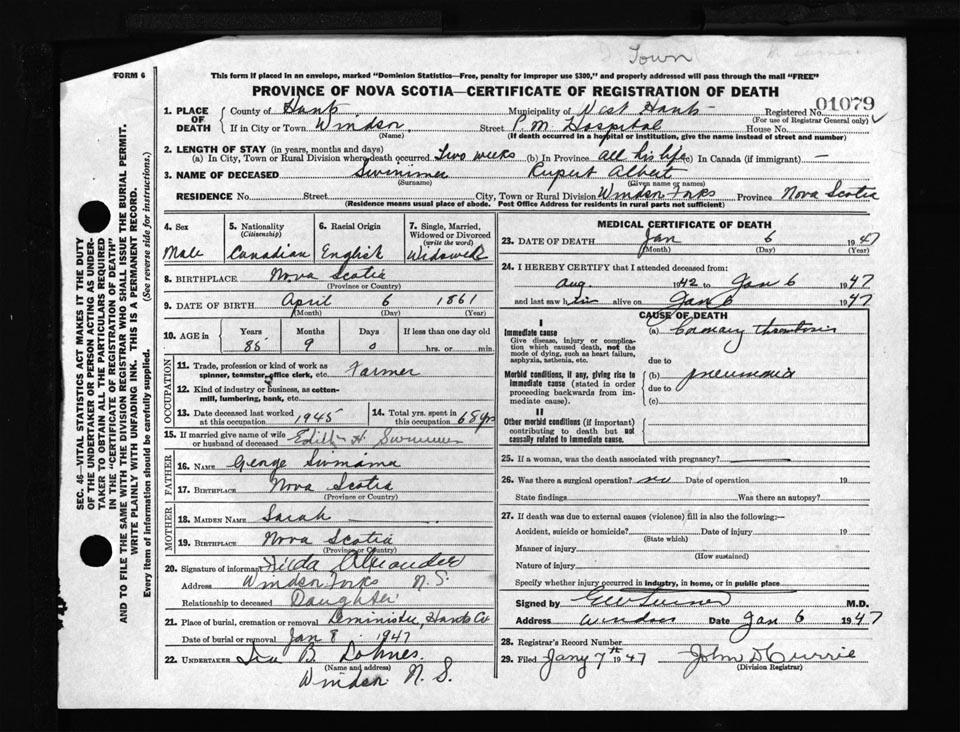 Town
FORM 6
This form if placed in an envelope, marked "Dominion Statistics—Free, penalty for improper use $300," and properly addressed will pass through the mail "FREE"
PROVINCE OF NOVA SCOTIA—CERTIFICATE OF REGISTRATION OF DEATH
1. PLACE OF DEATH
County of Hants Municipality of West Hants Registered No. 01079
(For use of Registrar General only)
If in City or Town Windsor Street P. M. Hospital House No.
(Name) (If death occurred in a hospital or institution, give the name instead of street and number)
2. LENGTH OF STAY (in years, months and days)
(a) In City, Town or Rural Division where death occurred Two weeks (b) In Province all his life (c) In Canada (if immigrant) —
3. NAME OF DECEASED Swinimer Rupert Albert
(Surname) (Given name or names)
RESIDENCE No. Street City, Town or Rural Division Windsor Forks Province Nova Scotia
(Residence means usual place of abode. Post Office Address for residents in rural parts not sufficient)
4. Sex Male
5. Nationality (Citizenship) Canadian
6. Racial Origin English
7. Single, Married, Widowed or Divorced (write the word) Widowed
8. BIRTHPLACE Nova Scotia
(Province or Country)
9. DATE OF BIRTH April 6 1861
(Month) (Day) (Year)
10. AGE in Years Months Days If less than one day old
85 9 0 hrs. or min.
OCCUPATION
11. Trade, profession or kind of work as spinner, teamster, office clerk, etc. Farmer
12. Kind of industry or business, as cotton-mill, lumbering, bank, etc.
13. Date deceased last worked at this occupation 1945
14. Total yrs. spent in this occupation 68 yrs
15. If married give name of wife or husband of deceased Edith H. Swinimer
FATHER
16. NAME George
17. BIRTHPLACE Nova Scotia
(Province or Country)
MOTHER
18. MAIDEN NAME Sarah
19. BIRTHPLACE Nova Scotia
(Province or Country)
20. Signature of informant Hilda Alexander
Address Windsor Forks N.S.
Relationship to deceased Daughter
21. Place of burial, cremation or removal Hants Co
Date of burial or removal Jan 8 1947
22. UNDERTAKER Ira B. Lohnes
(Name and address)
Windsor N.S.
MEDICAL CERTIFICATE OF DEATH
23. DATE OF DEATH Jan 6 1947
(Month) (Day) (Year)
24. I HEREBY CERTIFY that I attended deceased from:
Aug. 1942 to Jan 6 1947
and last saw him alive on Jan 6 1947
CAUSE OF DEATH
I
Immediate cause (a) Coronary thrombosis
Give disease, injury or complication which caused death, not the mode of dying, such as heart failure, asphyxia, asthenia, etc.
due to
Morbid conditions, if any, giving rise to immediate cause (stated in order proceeding backwards from immediate cause).
(b) pneumonia
due to
(c)
II
Other morbid conditions (if important) contributing to death but not causally related to immediate cause.
25. If a woman, was the death associated with pregnancy?
26. Was there a surgical operation? no Date of operation 19
State findings Was there an autopsy?
27. If death was due to external causes (violence) fill in also the following:—
Accident, suicide or homicide? Date of injury 19
(State which)
Manner of injury
(How sustained)
Nature of injury
Specify whether injury occurred in industry, in home, or in public place
Signed by M.D.
Address Windsor Date Jan 6 1947
28. Registrar's Record Number
29. Filed Jany 7th 1947 John D Currie
(Division Registrar)
SEC. 46—VITAL STATISTICS ACT MAKES IT THE DUTY
OF THE UNDERTAKER OR PERSON ACTING AS UNDER-
TAKER TO OBTAIN ALL THE PARTICULARS REQUIRED
IN THE "CERTIFICATE OF REGISTRATION OF DEATH"
AND TO FILE THE SAME WITH THE DIVISION REGISTRAR WHO SHALL ISSUE THE BURIAL PERMIT.
WRITE PLAINLY WITH UNFADING INK. THIS IS A PERMANENT RECORD.
Every item of information should be carefully supplied. (See reverse side for instructions.)